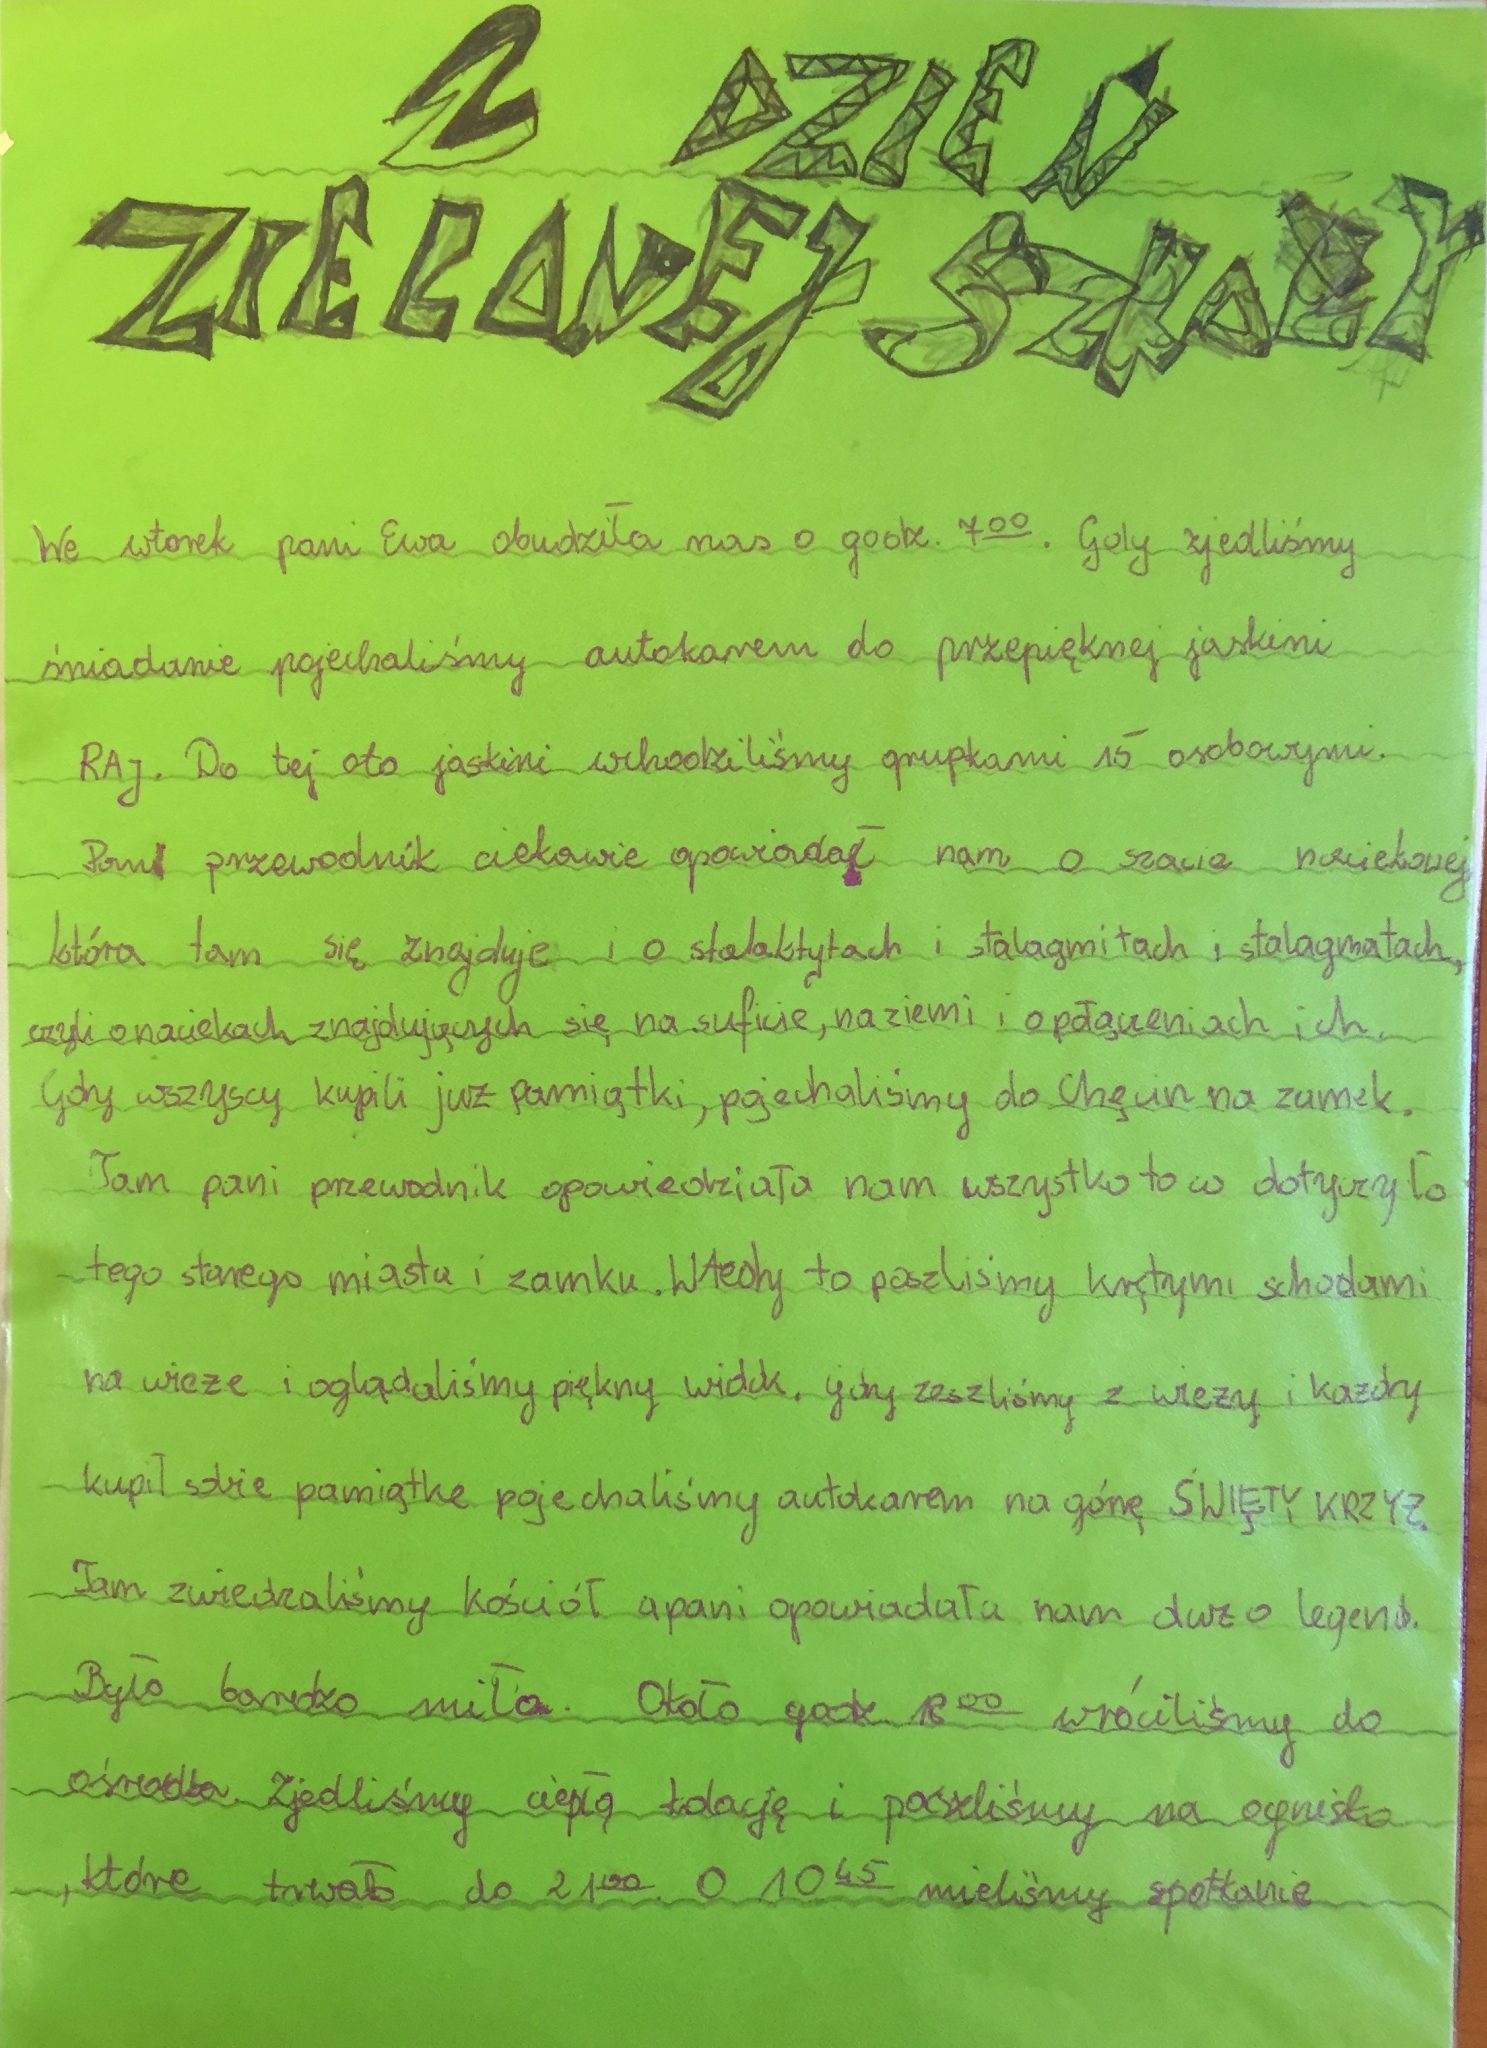 2 DZIEŃ
ZIELONEJ SZKOŁY
We wtorek pani Ewa obudziła nas o godz. 7⁰⁰. Gdy zjedliśmy
śniadanie pojechaliśmy autokarem do przepięknej jaskini
RAJ. Do tej oto jaskini wchodziliśmy grupkami 15 osobowymi.
Pan przewodnik ciekawie opowiadał nam o szacie naciekowej
która tam się znajduje i o stalaktytach i stalagmitach i stalagmatach,
czyli o naciekach znajdujących się na suficie, na ziemi i o połączeniach ich.
Gdy wszyscy kupili juz pamiątki, pojechaliśmy do Chęcin na zamek.
Tam pani przewodnik opowiedziała nam wszystko to co dotyczyło
tego starego miasta i zamku. Wtedy to poszliśmy krętymi schodami
na wieze i oglądaliśmy piękny widok. Gdy zeszliśmy z wiezy i kazdy
kupił sobie pamiątke pojechaliśmy autokarem na górę ŚWIĘTY KRZYZ.
Tam zwiedzaliśmy kościół a pani opowiadała nam duzo legend.
Było bardzo miło. Około godz 18⁰⁰ wróciliśmy do
ośrodka. Zjedliśmy ciepłą kolację i poszliśmy na ognisko
, które trwało do 21⁰⁰. O 10⁴⁵ mieliśmy spotkanie